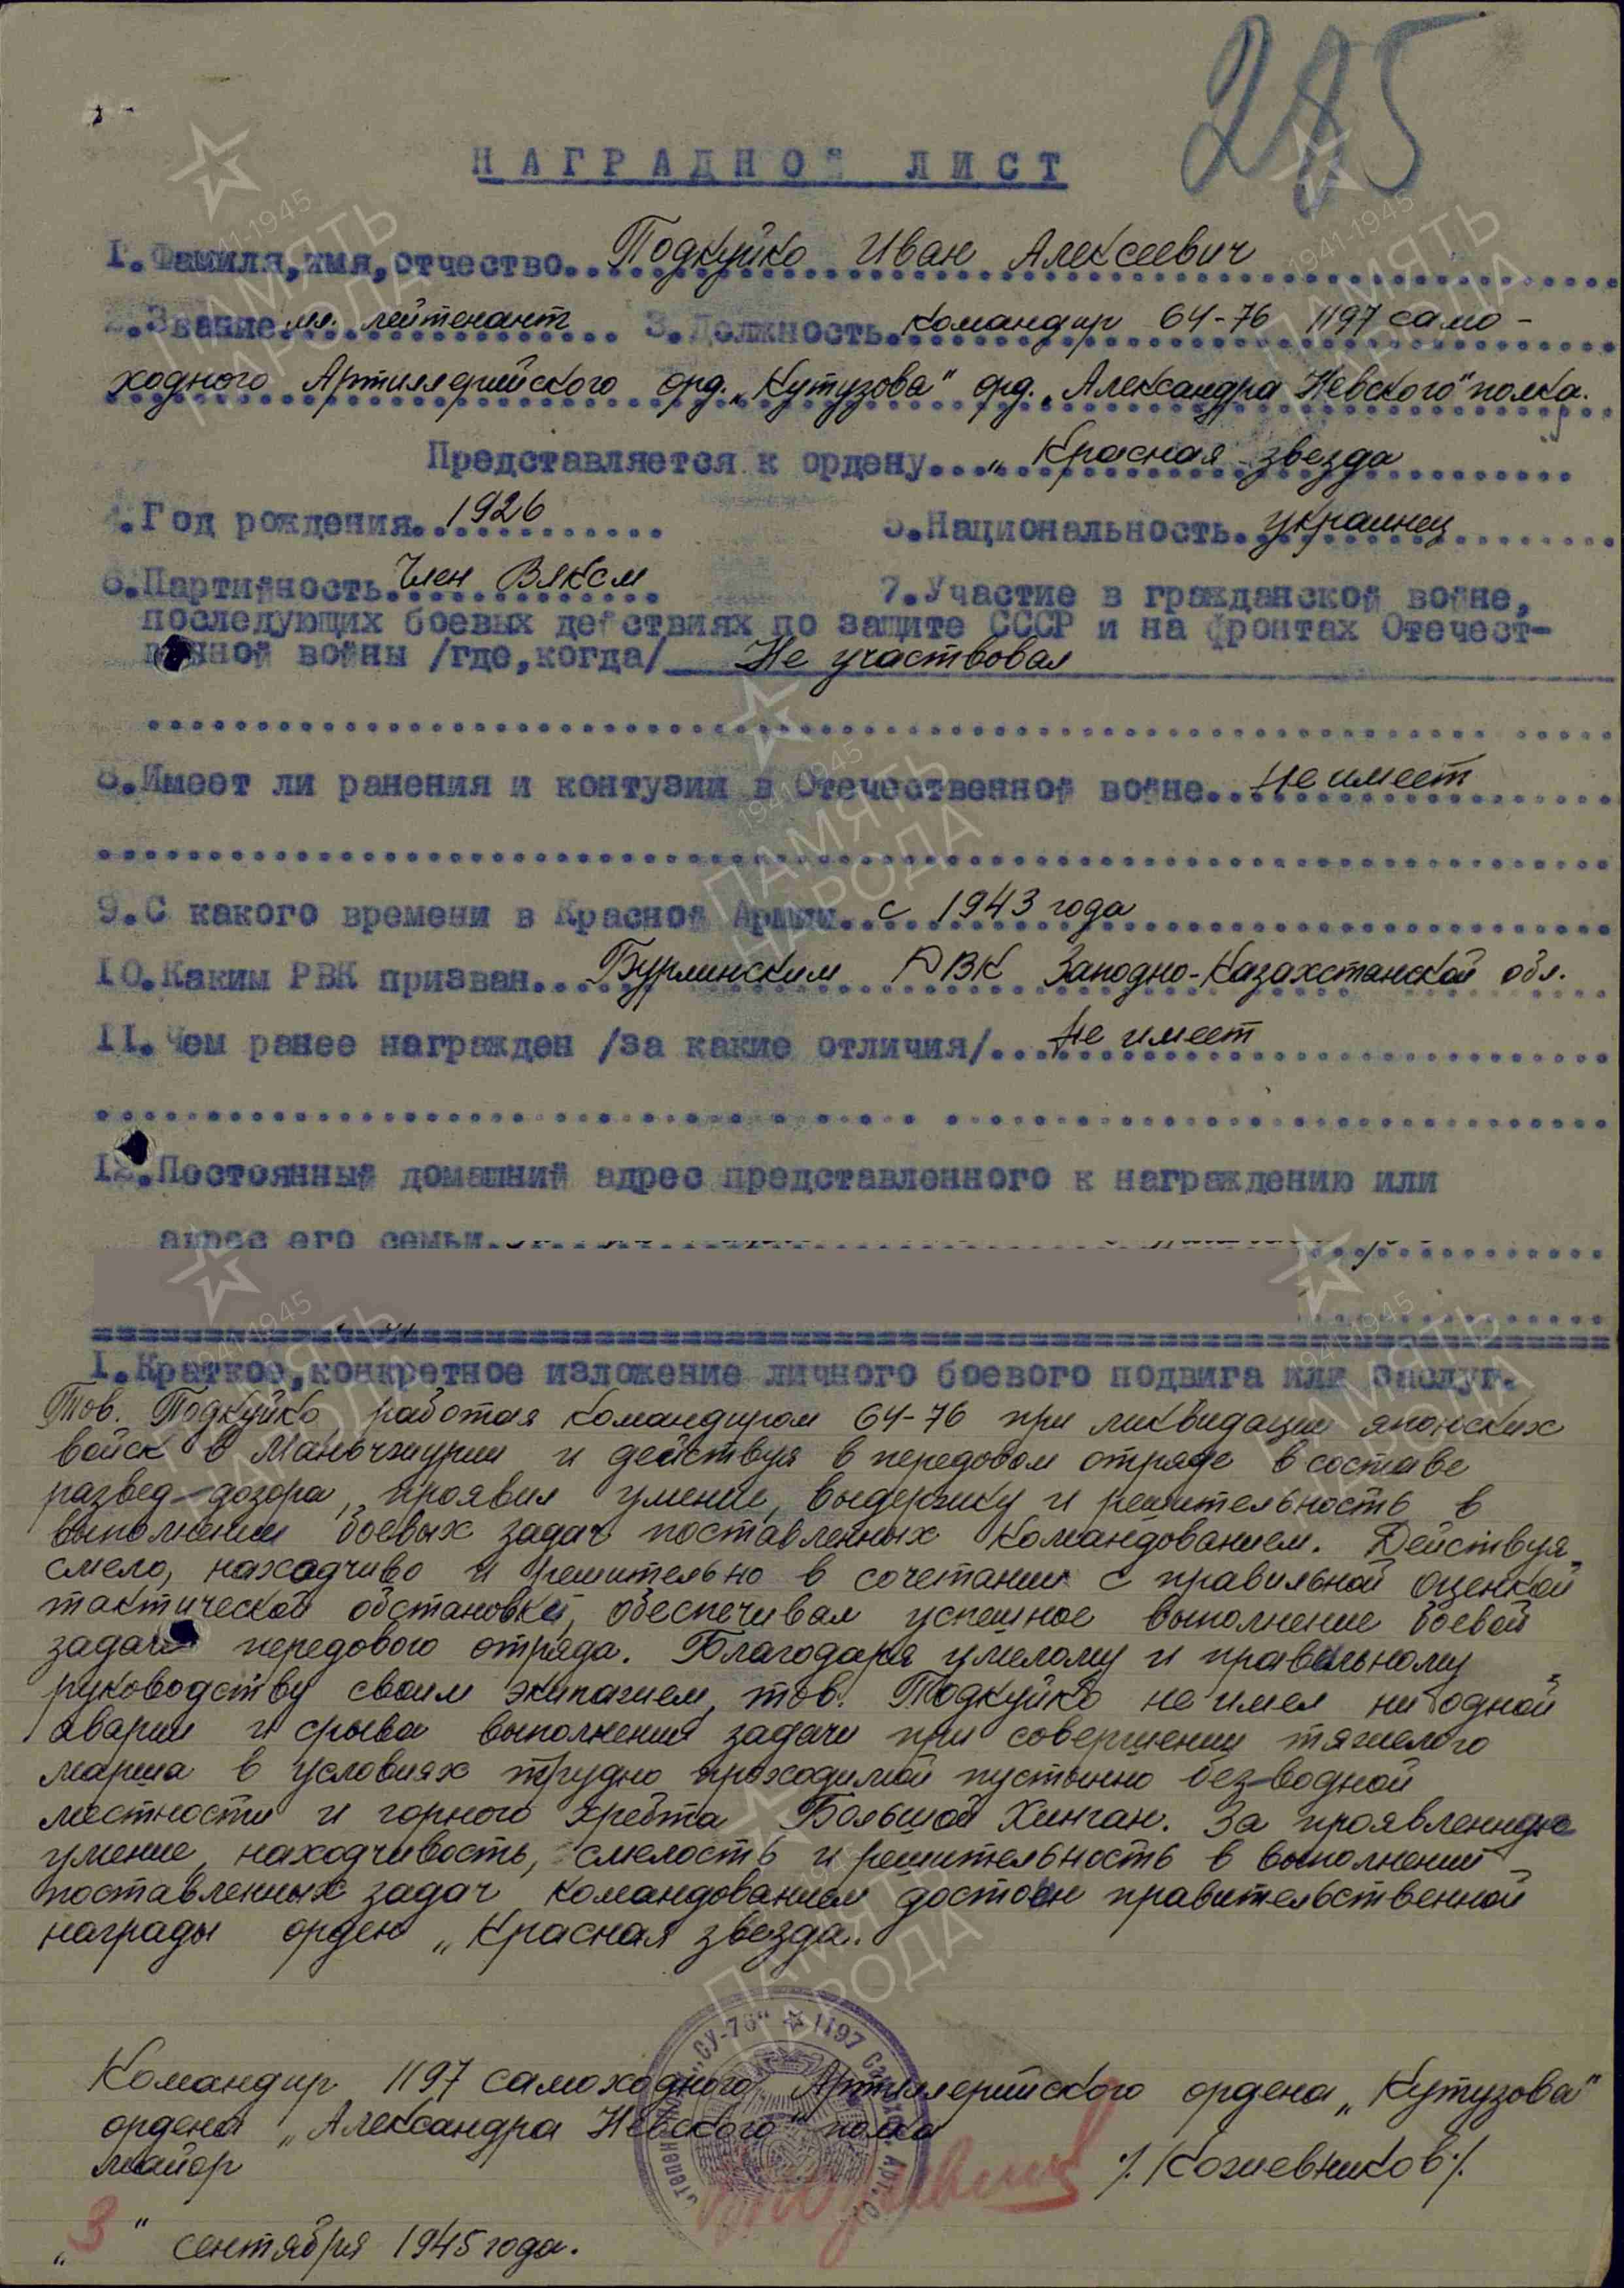 285
НАГРАДНОЙ ЛИСТ
1. Фамилия, имя, отчество... Подкуйко Иван Алексеевич
2. Звание мл. лейтенант 3. Должность Командир СУ-76 1197 само-
ходного Артиллерийского орд. „Кутузова" орд. „Александра Невского" полка.
Представляется к ордену... „Красная звезда
4. Год рождения 1926 5. Национальность украинец
6. Партийность Член ВЛКСМ 7. Участие в гражданской войне,
последующих боевых действиях по защите СССР и на фронтах Отечест-
венной войны /где, когда/ Не участвовал
8. Имеет ли ранения и контузии в Отечественной войне... не имеет
9. С какого времени в Красной Армии... с 1943 года
10. Каким РВК призван... Бурлинским РВК Западно-Казахстанской обл.
11. Чем ранее награжден /за какие отличия/... Не имеет
12. Постоянный домашний адрес представленного к награждению или
адрес его семьи.
1. Краткое, конкретное изложение личного боевого подвига или заслуг.
Тов. Подкуйко работая командиром СУ-76 при ликвидации японских
войск в Маньчжурии и действуя в передовом отряде в составе
развед-дозора, проявил умение, выдержку и решительность в
выполнении боевых задач поставленных Командованием. Действуя
смело, находчиво и решительно в сочетании с правильной оценкой
тактической обстановки, обеспечивал успешное выполнение боевой
задачи передового отряда. Благодаря умелому и правильному
руководству своим экипажем, тов. Подкуйко не имел ни одной
аварии и срыва выполнения задачи при совершении тяжелого
марша в условиях трудно проходимой пустынно безводной
местности и горного хребта Большой Хинган. За проявленную
умение, находчивость, смелость и решительность в выполнении
поставленных задач командованием достоин правительственной
награды орден „Красная звезда.
Командир 1197 самоходного Артиллерийского ордена „Кутузова"
ордена „Александра Невского" полка
майор /.Кожевников./
„3" сентября 1945 года.
„СУ-76" ☆ 1197 Самох. Арт.
ПАМЯТЬ НАРОДА
1941-1945